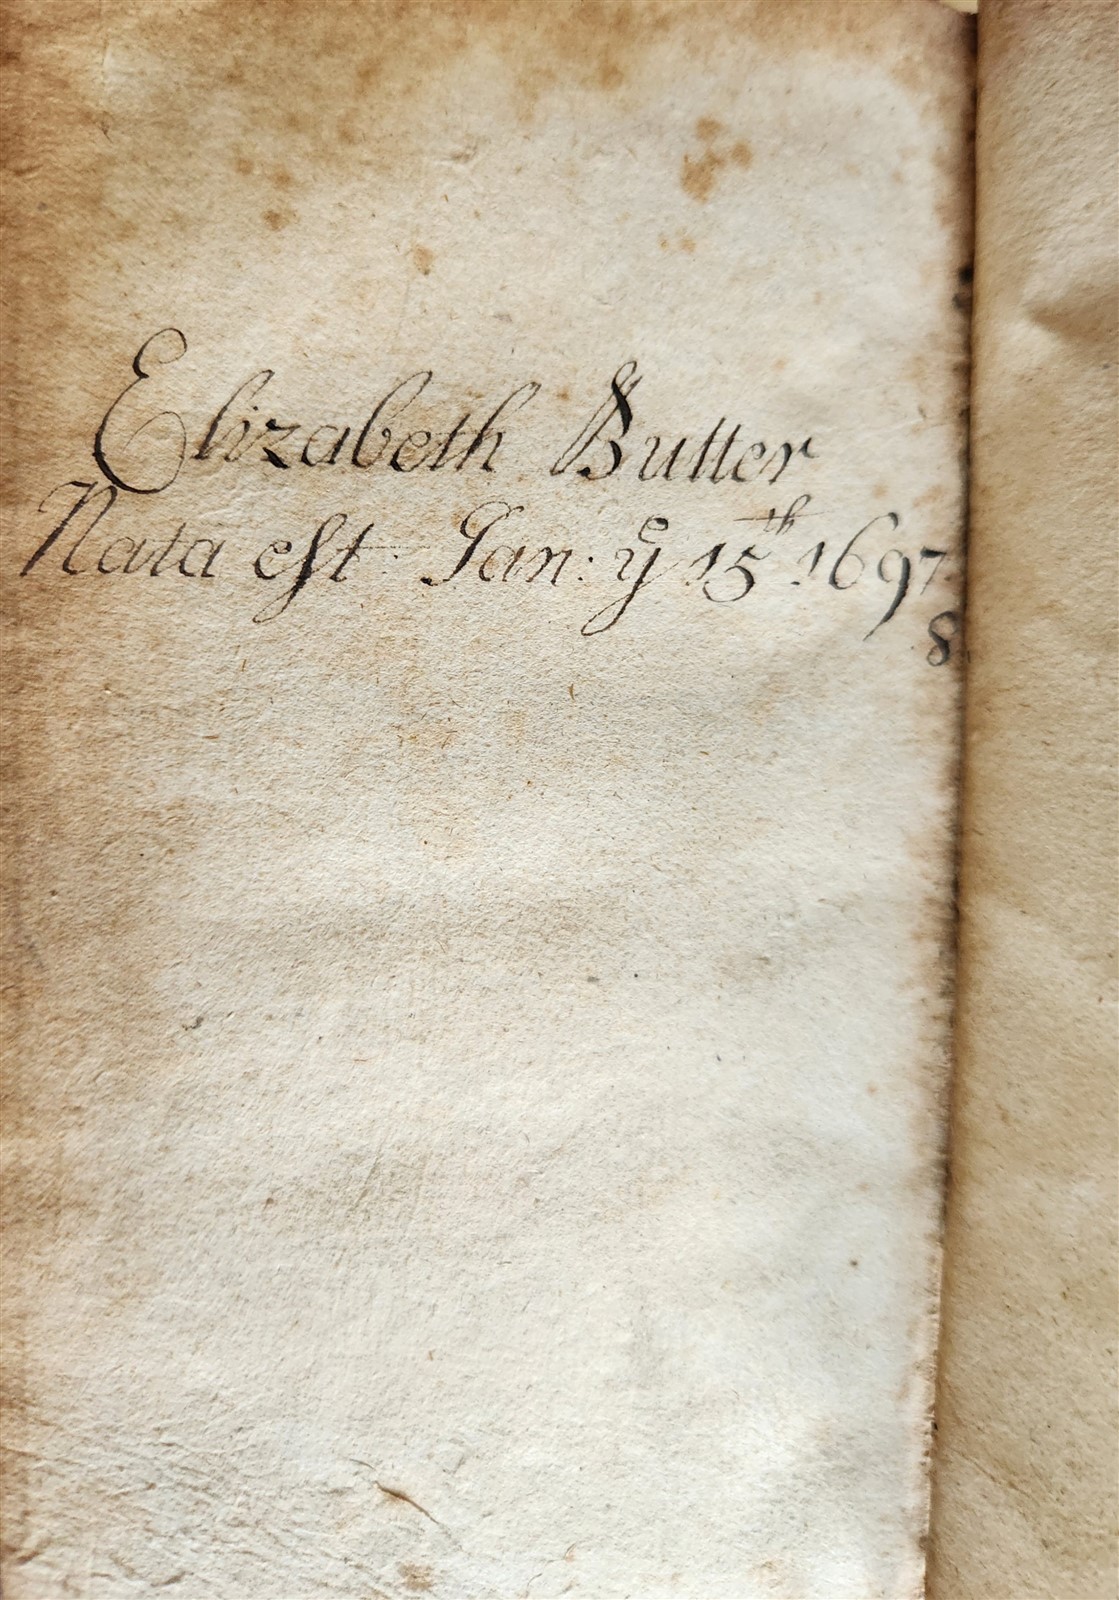 Elizabeth Butter
Nata eſt Jan: yͤ 15th 1697
8